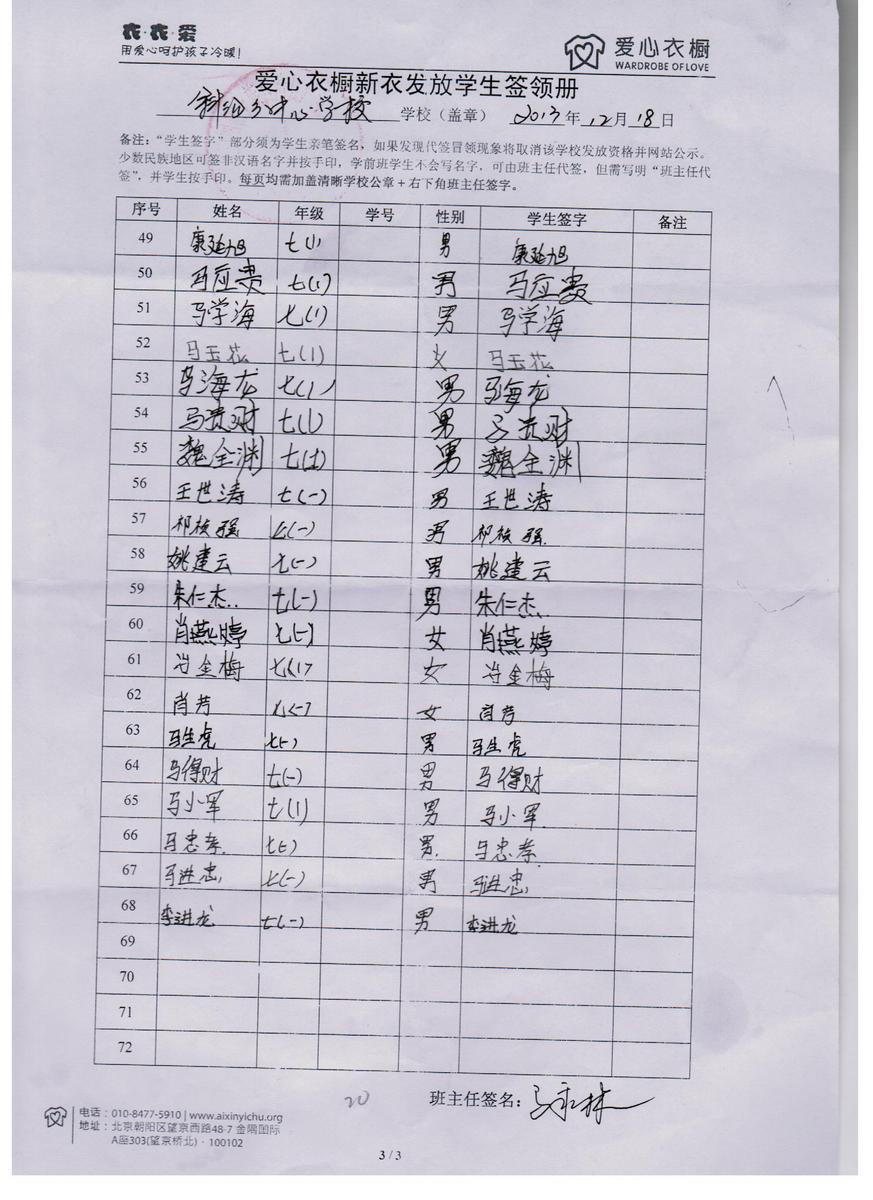 衣·衣·爱
用爱心呵护孩子冷暖!
爱心衣橱
WARDROBE OF LOVE
爱心衣橱新衣发放学生签领册
中心学校 学校（盖章） 2013年12月18日
备注：“学生签字”部分须为学生亲笔签名，如果发现代签冒领现象将取消该学校发放资格并网站公示。
少数民族地区可签非汉语名字并按手印，学前班学生不会写名字，可由班主任代签，但需写明“班主任代
签”，并学生按手印。每页均需加盖清晰学校公章+右下角班主任签字。
序号 姓名 年级 学号 性别 学生签字 备注
49 康延旭 七(1) 男 康延旭
50 马应贵 七(1) 男 马应贵
51 马学海 七(1) 男 马学海
52 马玉花 七(1) 女 马玉花
53 马海龙 七(1) 男 马海龙
54 马贵财 七(1) 男 马贵财
55 魏全渊 七 男 魏全渊
56 王世涛 七(一) 男 王世涛
57 祁 强 七(一) 男 祁 强
58 姚建云 七(一) 男 姚建云
59 朱仁杰 七(一) 男 朱仁杰
60 肖燕婷 七(一) 女 肖燕婷
61 金梅 七(1) 女 金梅
62 肖芳 七(一) 女 肖芳
63 马生虎 七(一) 男 马生虎
64 马得财 七(一) 男 马得财
65 马小军 七(1) 男 马小军
66 马忠孝 七(一) 男 马忠孝
67 马进忠 七(一) 男 马进忠
68 李进龙 七(一) 男 李进龙
69
70
71
72
20 班主任签名：马永林
电话：010-8477-5910 | www.aixinyichu.org
地址：北京朝阳区望京西路48-7 金隅国际
A座303(望京桥北)·100102
3 / 3